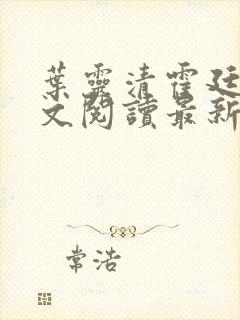 葉靈清霍廷
文閱讀最新
常浩